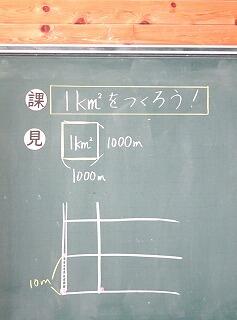 課 1km²をつくろう!
見 1km² 1000m
1000m
10m